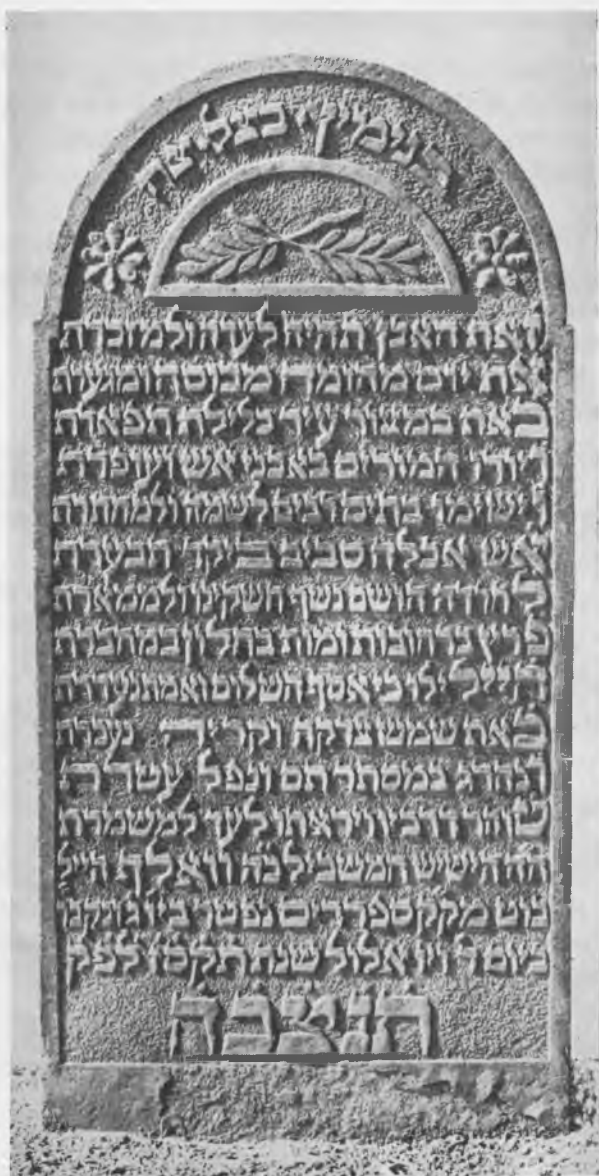 בנימין
זאת האבן תהיה לעדה ולמזכרת
את יום מהומה מבוסה ומגערת
באה במצור עיר כלילת תפארת
ויורו המורים באבני אש ועופרת
וישימו בתים רבים לשמה ולמחתרת
אש אכלה סביב ביקד תבערת
לחרדה הושם נשף חשקינו ולממארת
פרץ ומות בחלון
כי אסף השלום ואמת נעדרת
באה שמש צדקה וקריה נעכרת
ונהרג במסתר תם ונפל עטרת
טוהר דרכיו ויראתו לעד למשמרת
המשכיל כה וואלף הייל
בוט מקק ספרדים נפטר ביוג ונקבר
ביום ד ויו אלול שנת תקסז לפק
תנצבה